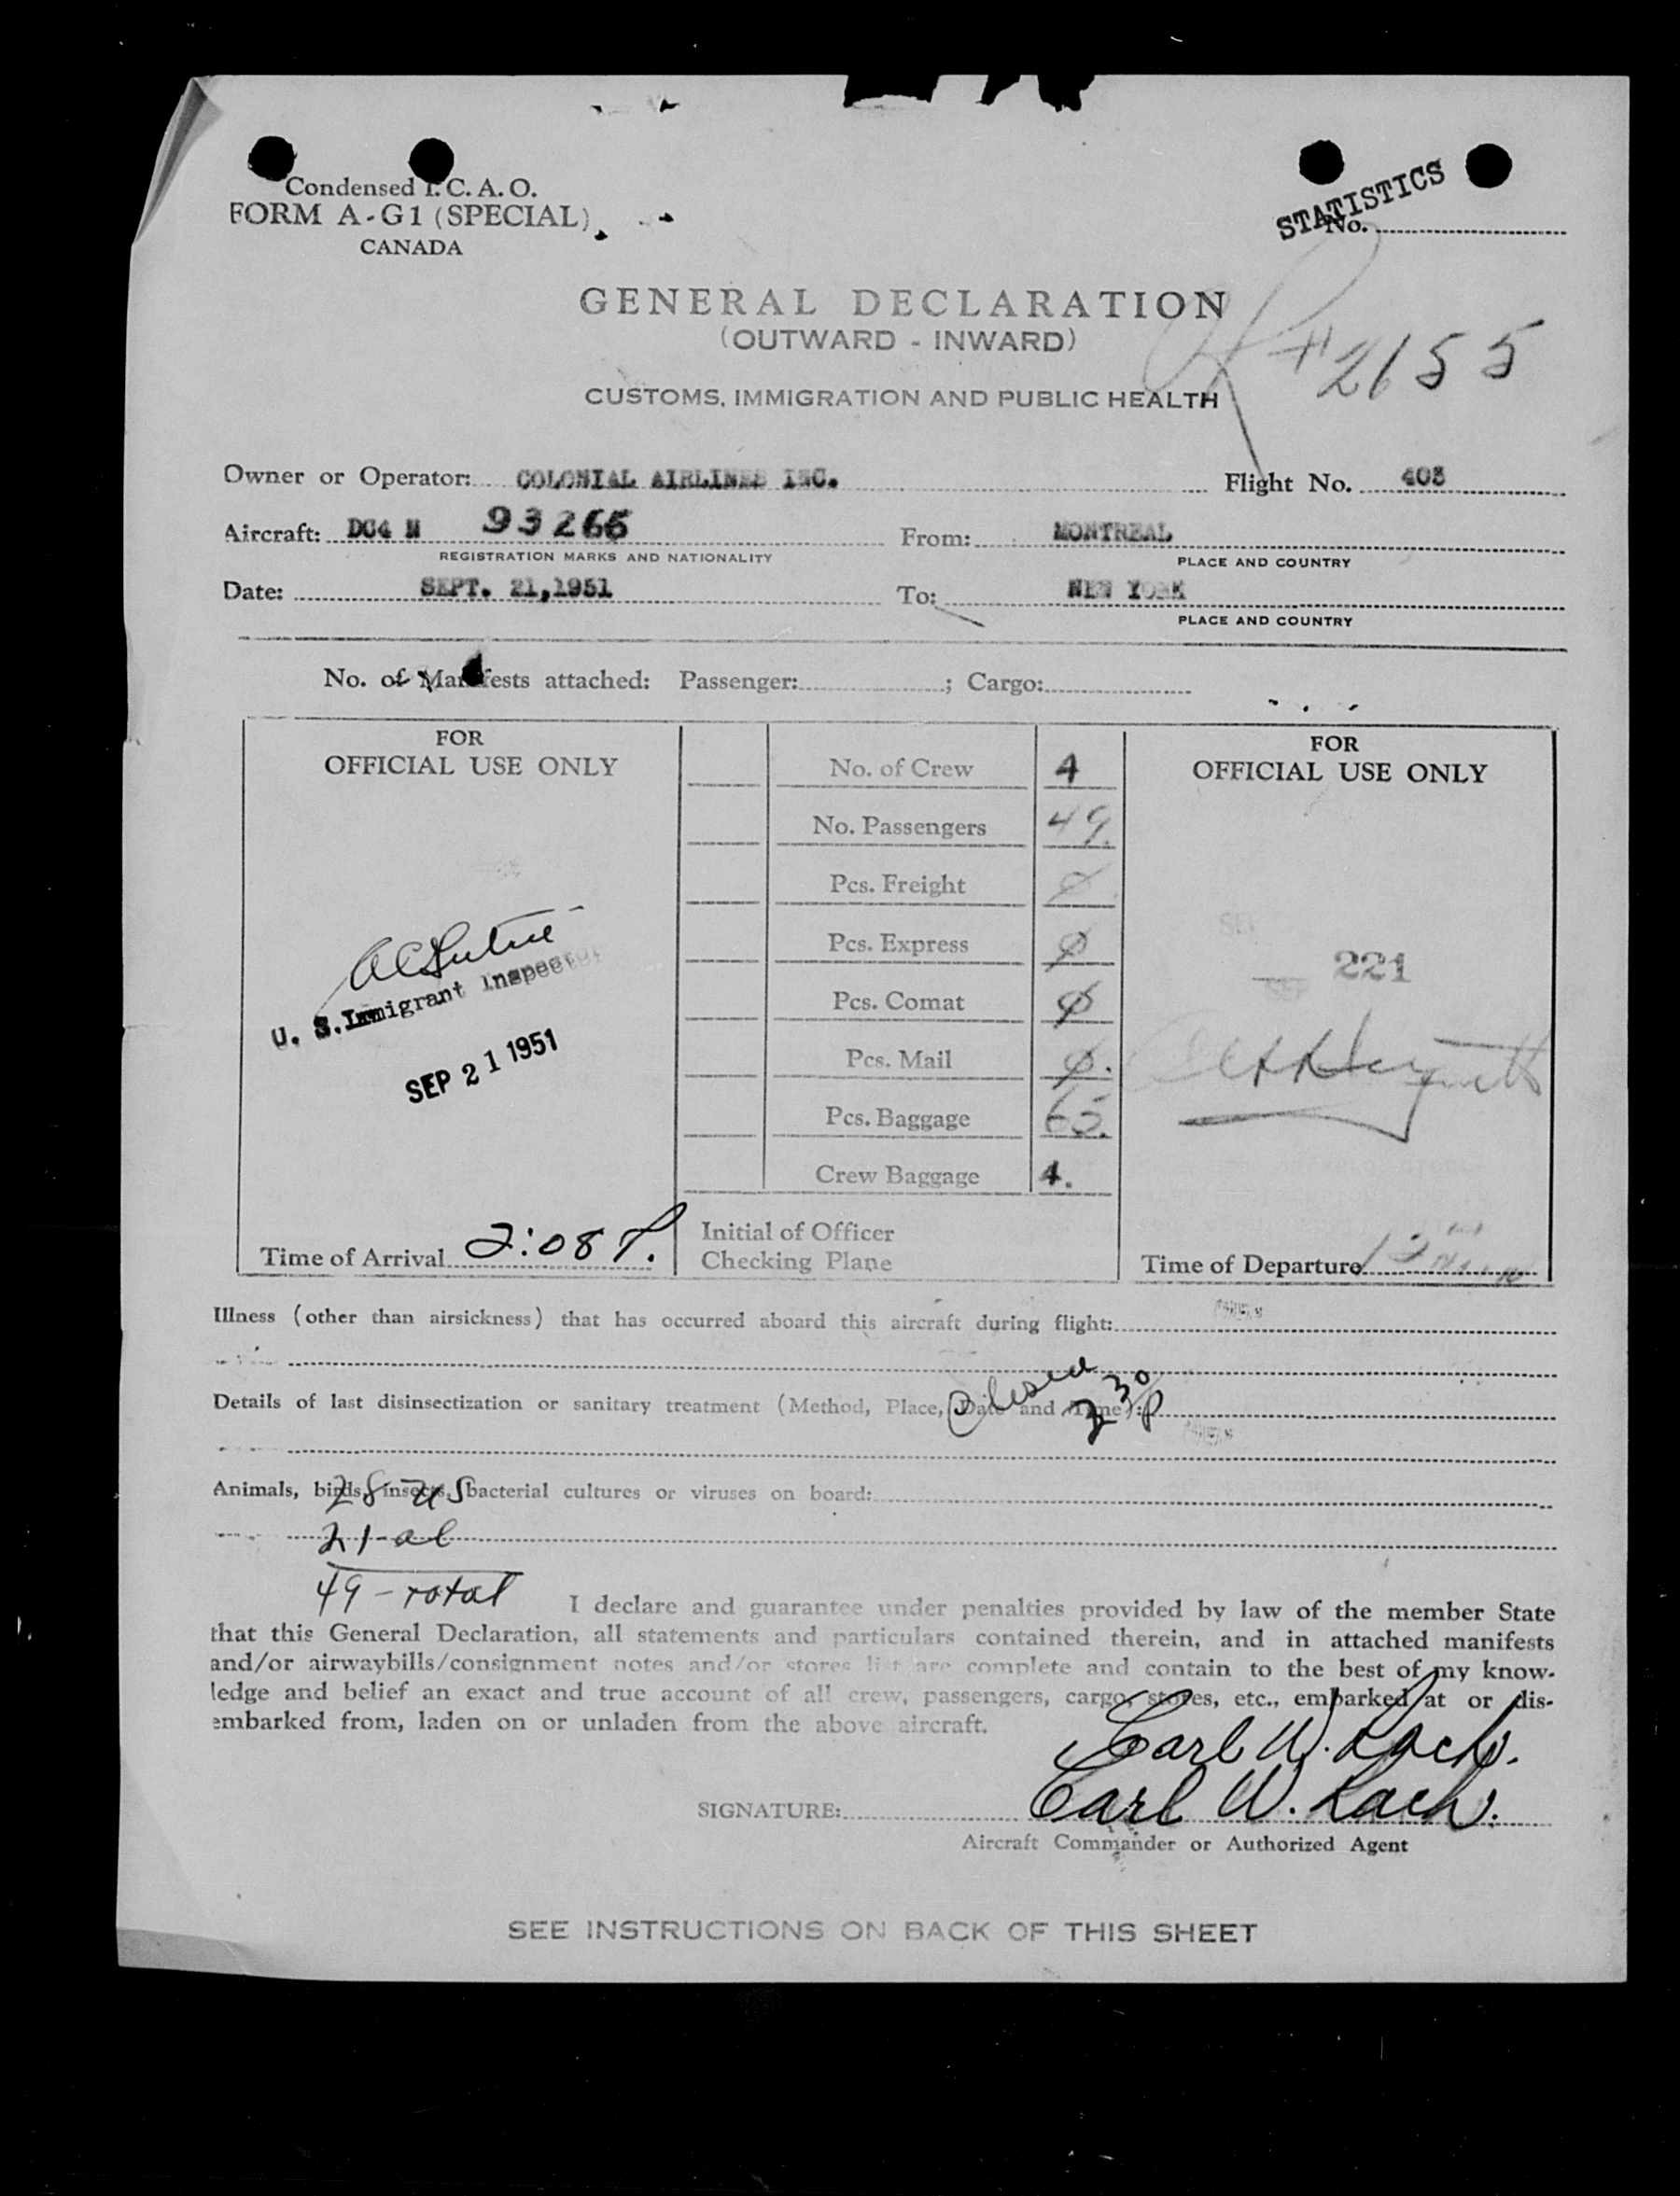 Condensed I. C. A. O.
FORM A-G1 (SPECIAL)
CANADA
STATISTICS
No.
GENERAL DECLARATION
(OUTWARD - INWARD)
#2155
CUSTOMS, IMMIGRATION AND PUBLIC HEALTH
Owner or Operator: COLONIAL AIRLINES INC. Flight No. 403
Aircraft: DC4 N 93266 From: MONTREAL
REGISTRATION MARKS AND NATIONALITY PLACE AND COUNTRY
Date: SEPT. 21,1951 To: NEW YORK
PLACE AND COUNTRY
No. of Manifests attached: Passenger: ; Cargo:
FOR
OFFICIAL USE ONLY
U. S. Immigrant Inspector
SEP 21 1951
Time of Arrival 2:08 P.
No. of Crew 4
No. Passengers 49.
Pcs. Freight 0
Pcs. Express 0
Pcs. Comat 0
Pcs. Mail 0.
Pcs. Baggage 65.
Crew Baggage 4.
Initial of Officer
Checking Plane
FOR
OFFICIAL USE ONLY
221
Time of Departure
Illness (other than airsickness) that has occurred aboard this aircraft during flight:
Details of last disinsectization or sanitary treatment (Method, Place, Date and Time):
Closed
230P
Animals, birds, insects, bacterial cultures or viruses on board:
28 - US
21-al
49 - total
I declare and guarantee under penalties provided by law of the member State
that this General Declaration, all statements and particulars contained therein, and in attached manifests
and/or airwaybills/consignment notes and/or stores list are complete and contain to the best of my know-
ledge and belief an exact and true account of all crew, passengers, cargo, stores, etc., embarked at or dis-
embarked from, laden on or unladen from the above aircraft.
Carl W.
SIGNATURE: Carl W.
Aircraft Commander or Authorized Agent
SEE INSTRUCTIONS ON BACK OF THIS SHEET